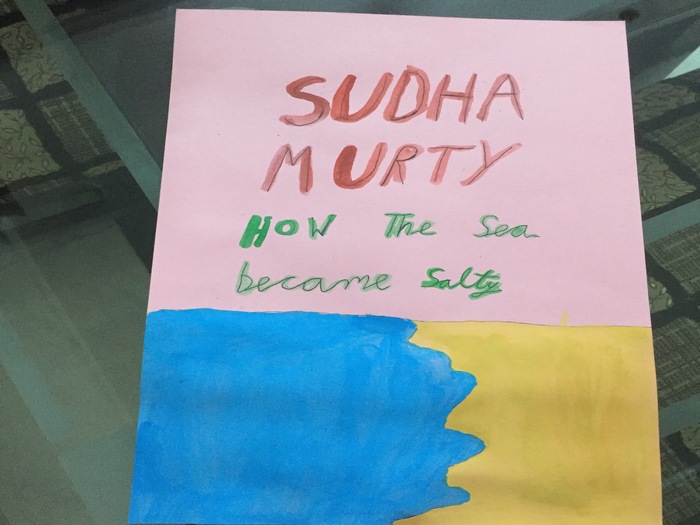 SUDHA
MURTY
HOW The Sea
became Salty